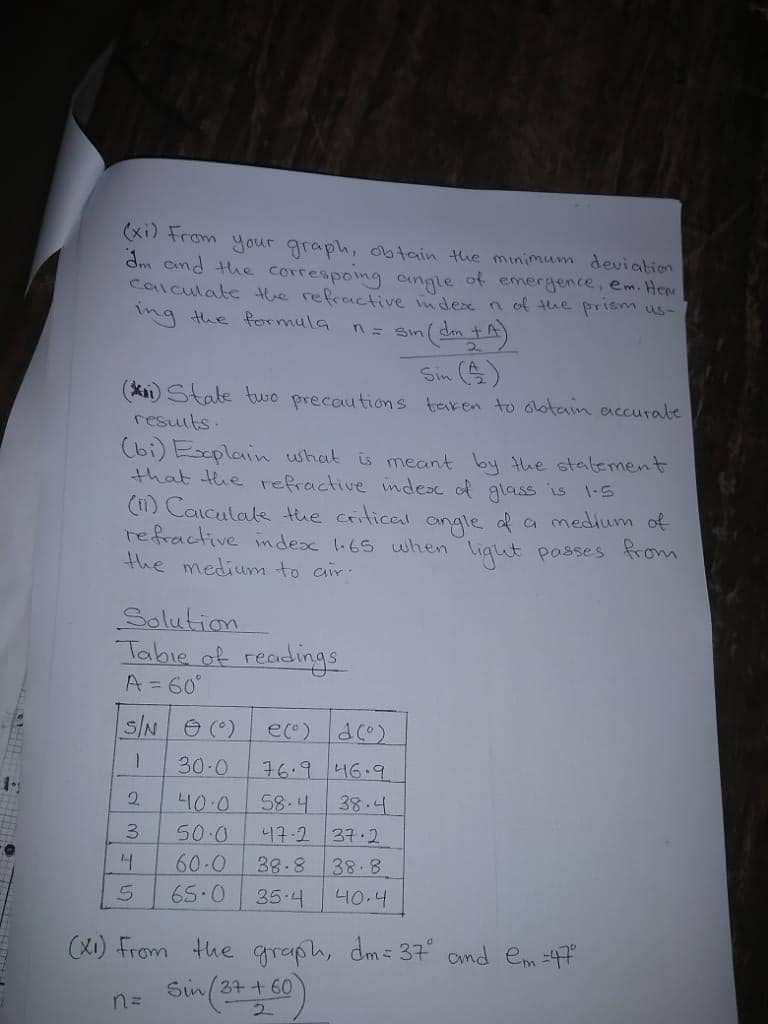 (xi) From your graph, obtain the minimum deviation
dm and the correspoing angle of emergence, em. Hen
calculate the refractive index n of the prism us-
ing the formula n = sin(dm + A / 2)
Sin (A/2)
(xii) State two precautions taken to obtain accurate
results.
(bi) Explain what is meant by the statement
that the refractive index of glass is 1.5
(ii) Calculate the critical angle of a medium of
refractive index 1.65 when light passes from
the medium to air.
Solution
Table of readings
A = 60°
S/N θ (°) e(°) d(°)
1 30.0 76.9 46.9
2 40.0 58.4 38.4
3 50.0 47.2 37.2
4 60.0 38.8 38.8
5 65.0 35.4 40.4
(xi) from the graph, dm = 37° and em = 47°
n = Sin(37 + 60 / 2)